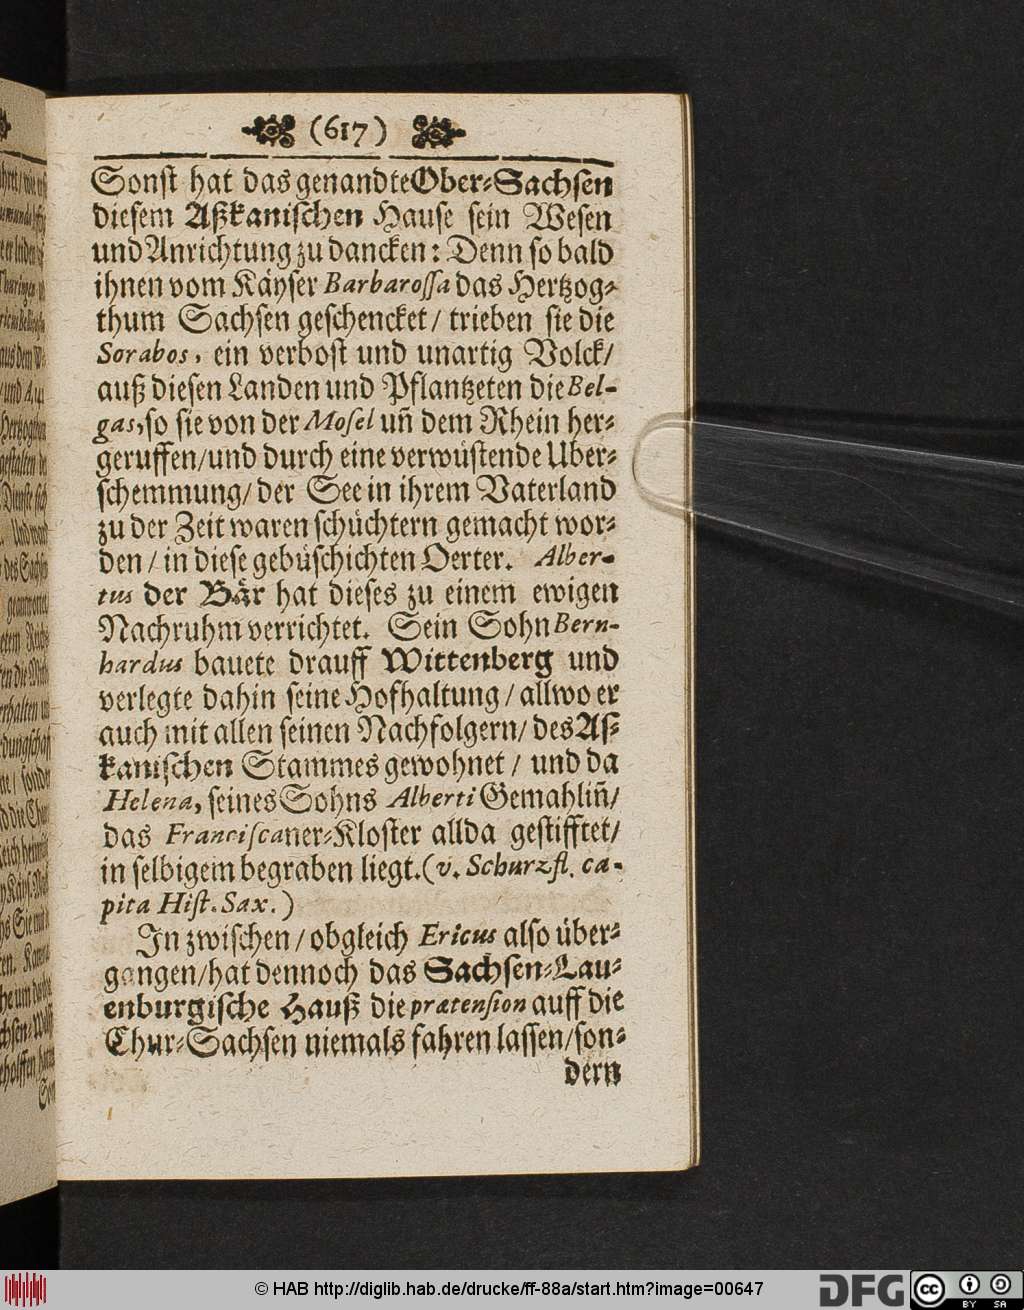 (617)
Sonst hat das genandte Ober-Sachsen
diesem Aßkanischen Hause sein Wesen
und Anrichtung zu dancken: Denn so bald
ihnen vom Käyser Barbarossa das Hertzog-
thum Sachsen geschencket / trieben sie die
Sorabos, ein verbost und unartig Volck/
auß diesen Landen und Pflantzeten die Bel-
gas, so sie von der Mosel uñ dem Rhein her-
geruffen/und durch eine verwüstende Uber-
schemmung/ der See in ihrem Vaterland
zu der Zeit waren schüchtern gemacht wor-
den / in diese gebüschichten Oerter. Alber-
tus der Bär hat dieses zu einem ewigen
Nachruhm verrichtet. Sein Sohn Bern-
hardus bauete drauff Wittenberg und
verlegte dahin seine Hofhaltung / allwo er
auch mit allen seinen Nachfolgern/ des Aß-
kanischen Stammes gewohnet / und da
Helena, seines Sohns Alberti Gemahliñ/
das Franciscaner-Kloster allda gestifftet/
in selbigem begraben liegt. (v. Schurzfl. ca-
pita Hist. Sax.)
In zwischen / obgleich Ericus also über-
gangen/hat dennoch das Sachsen-Lau-
enburgische Hauß die prætension auff die
Chur-Sachsen niemals fahren lassen/son-
dern
© HAB http://diglib.hab.de/drucke/ff-88a/start.htm?image=00647
DFG
cc BY SA